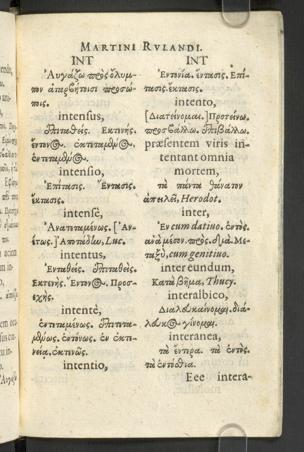 MARTINI RVLANDI.
INT
Αὐγάζω πρὸς ὄλυμ-
πον ἀταρβήτοισι προσώ-
ποις.
intensus,
Ἐπιταθείς. Ἐκτενής.
ἔντονος.
intensio,
Ἐπίτασις. Ἔντασις.
ἔκτασις.
intensè,
Ἀνατεταμένως. [Ἀν-
έτως.] Luc.
intentus,
Ἐνταθείς. Ἐπιταθείς.
Ἐκτενής. Ἔντονος. Προσ-
εχής.
intentè,
ἐντεταμένως. Ἐπιτετα-
μένως. ἐντόνως. ἐν ἐκτε-
νείᾳ. ἐκτενῶς.
intentio,
INT
Ἐντονία. ἔντασις. Ἐπί-
τασις. ἔκτασις.
intento,
[Διατείνομαι.] Προτείνω.
προσβάλλω. Ἐπιβάλλω.
præsentem viris in-
tentant omnia
mortem,
τὰ πάντα θάνατον
ἀπειλεῖ, Herodot.
inter,
Ἐν cum dativo. ἐντὸς.
ἀνὰ μέσον. πρὸς. διά. Με-
ταξὺ, cum genitiuo.
inter eundum,
Κατὰ βῆμα, Thucy.
interalbico,
Διαλευκαίνομαι. διά-
λευκος γίνομαι.
interanea,
τὰ ἔντερα. τὰ ἐντὸς.
τὰ ἐντόσθια.
Eee intera-